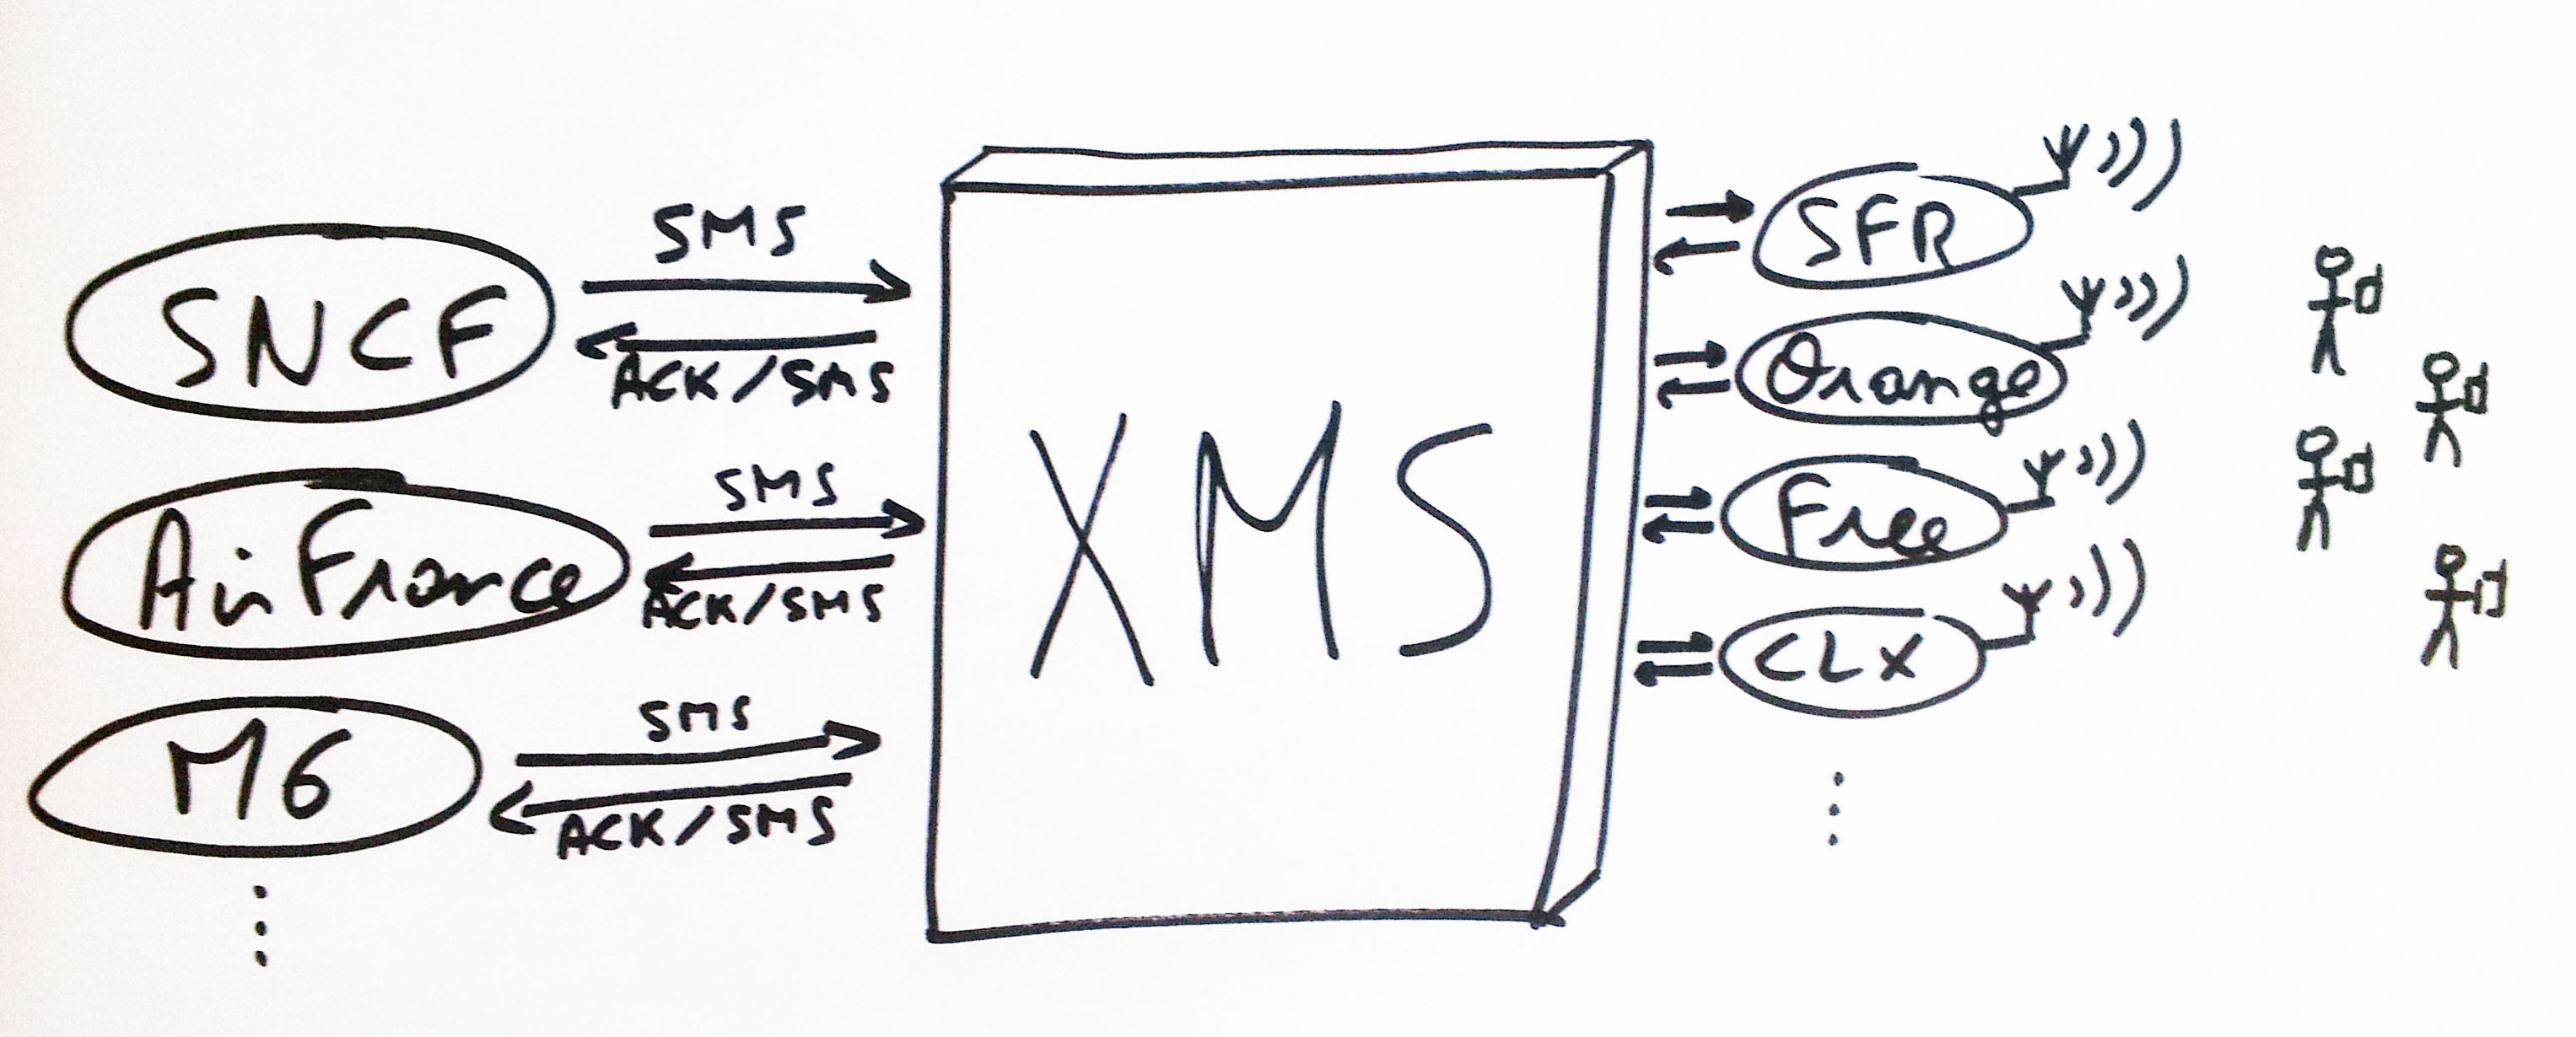 SNCF
SMS
ACK/SMS
AirFrance
SMS
ACK/SMS
M6
SMS
ACK/SMS
XMS
SFR
Orange
Free
CLX